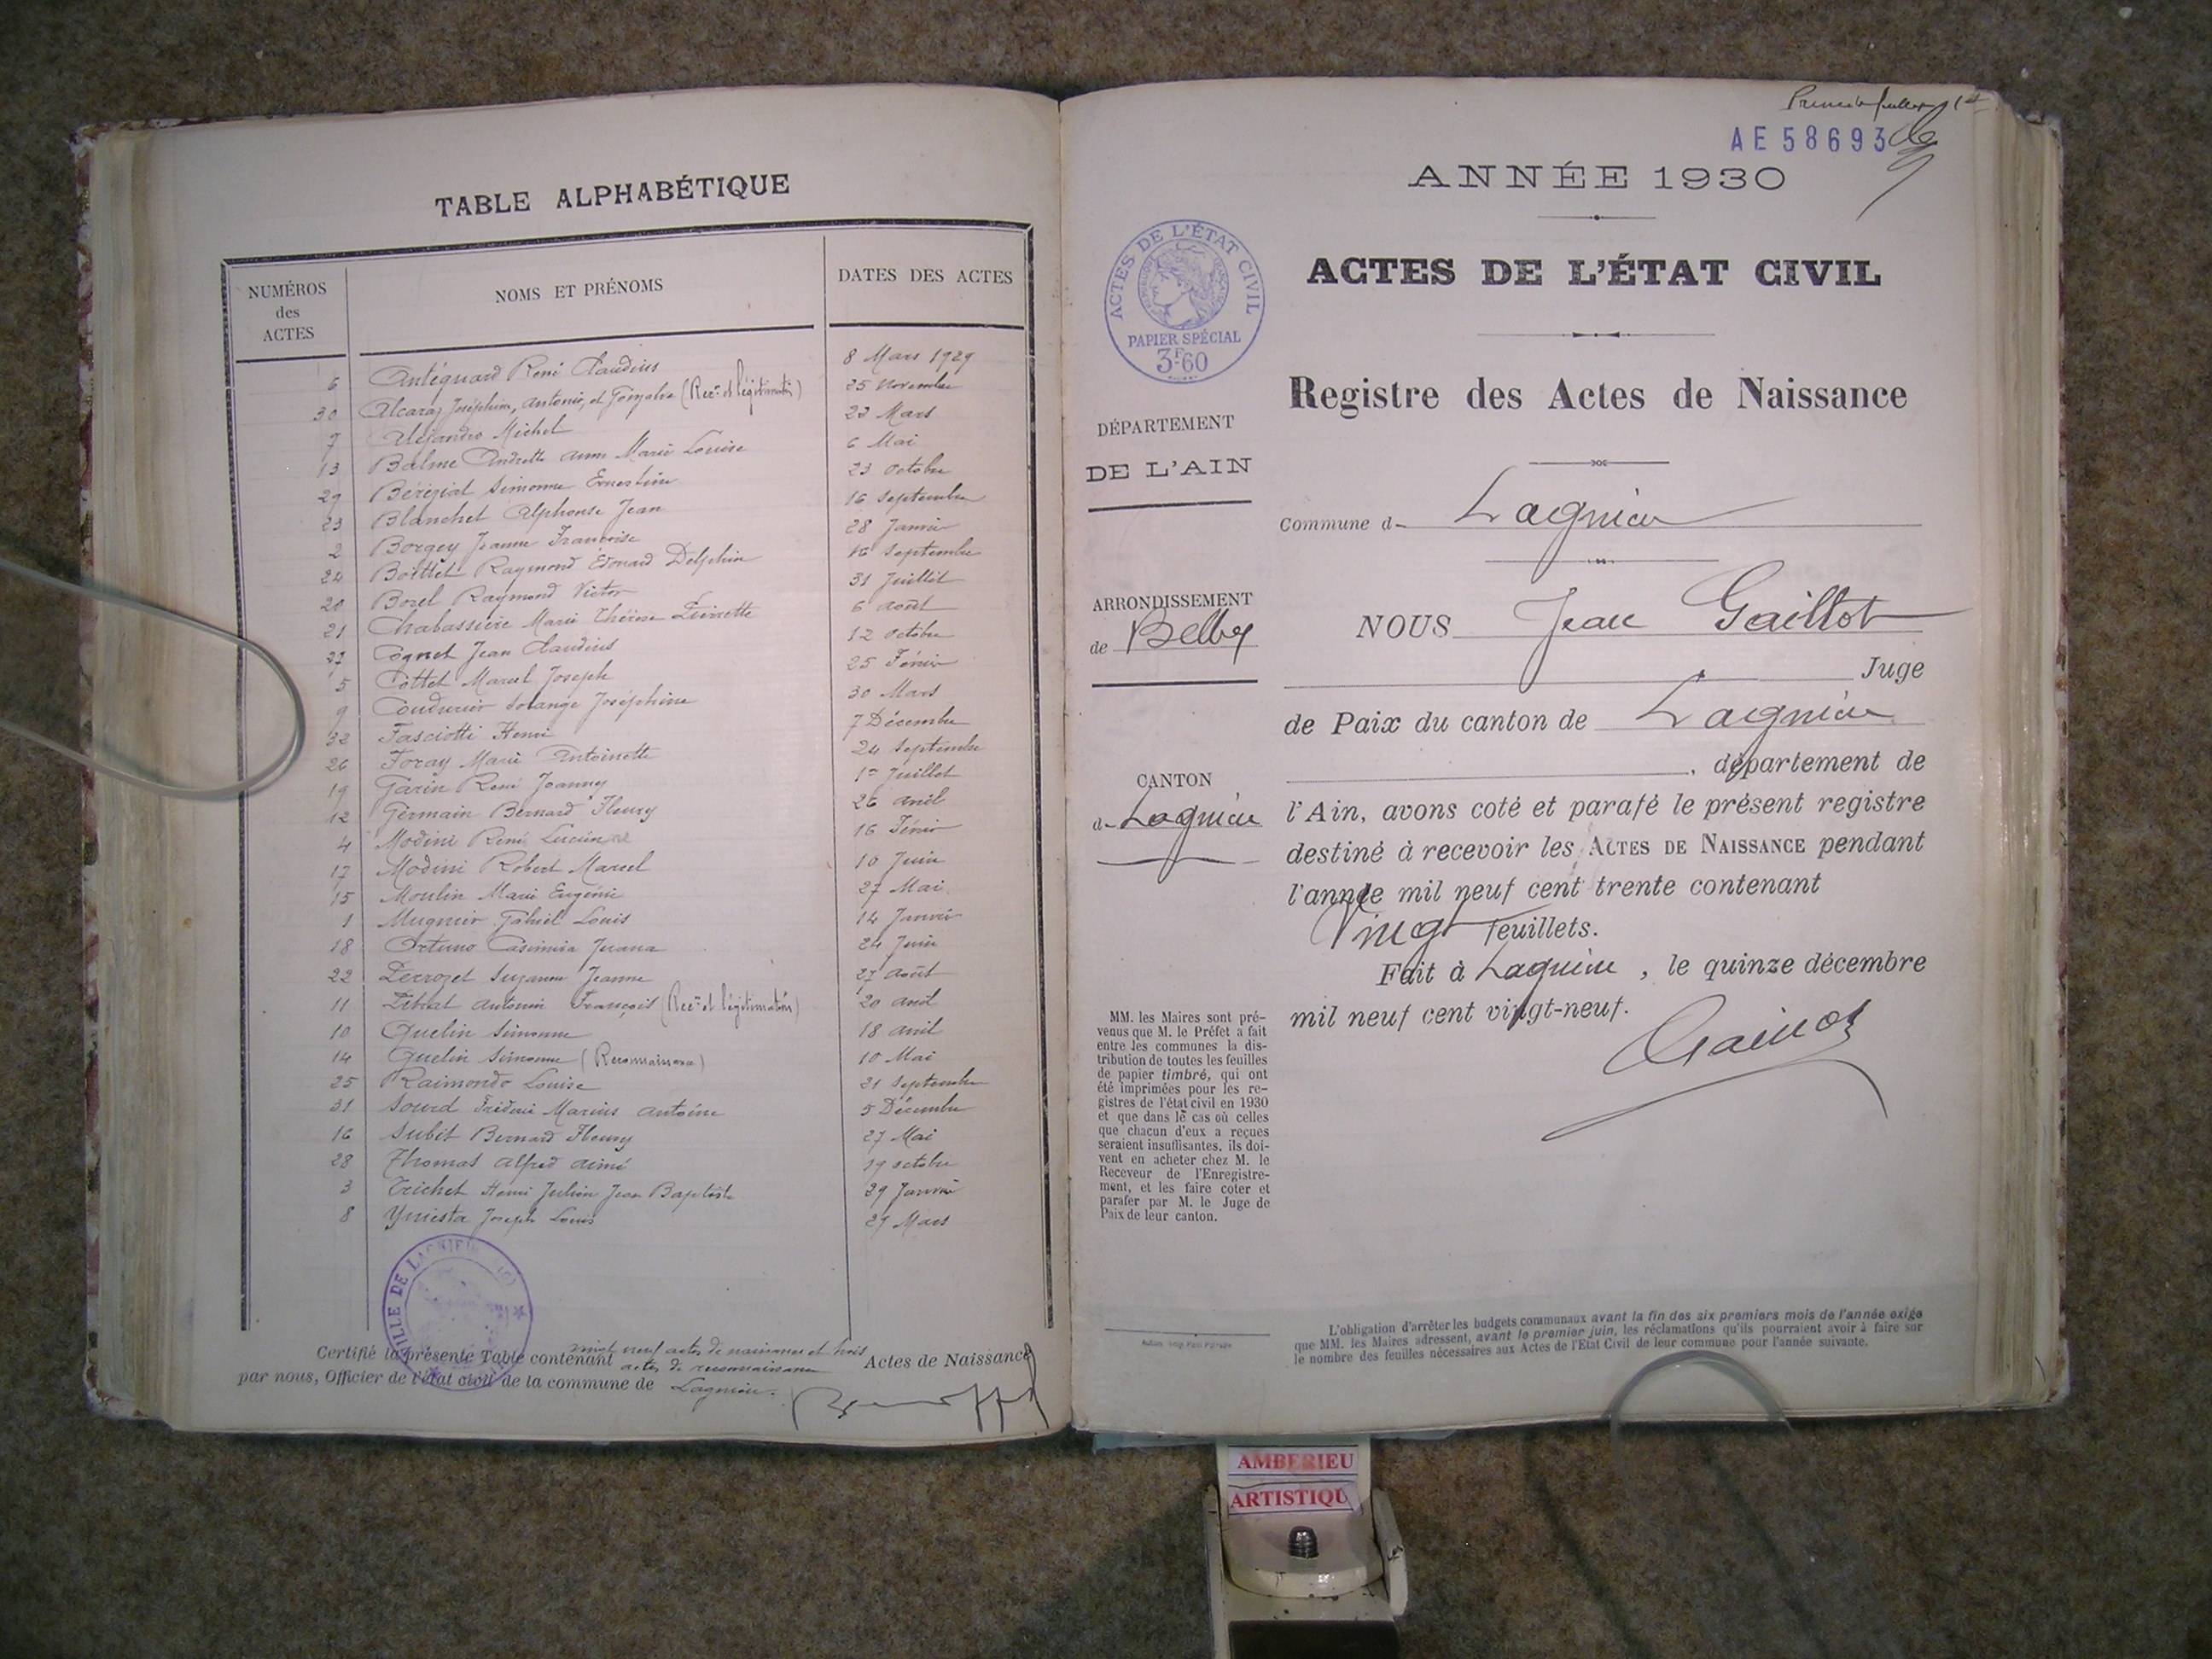 TABLE ALPHABÉTIQUE
NUMÉROS des ACTES NOMS ET PRÉNOMS DATES DES ACTES
6 Antéquard René Claudius 8 Mars 1929
30 Alcaraz Joséphine, Antonio, et Gonzalve (Recce et légitimation) 25 novembre
7 Alejandro Michel 23 Mars
13 Balme Andrette Anne Marie Louise 6 Mai
29 Béréziat Simonne Ernestine 23 octobre
23 Blanchet Alphonse Jean 16 septembre
2 Borgey Jeanne Françoise 28 Janvier
24 Bottet Raymond Edouard Delphin 16 septembre
20 Borel Raymond Victor 31 Juillet
21 Chabassière Marie Thérèse Pierrette 6 août
27 Cognet Jean Claudius 12 octobre
5 Cottet Marcel Joseph 25 Février
9 Coudurier Solange Joséphine 30 Mars
32 Fasciotti Henri 7 Décembre
26 Foray Marie Antoinette 24 septembre
19 Garin René Joanny 1er Juillet
12 Germain Bernard Fleury 26 avril
4 Modini René Lucien 16 Février
17 Modini Robert Marcel 10 Juin
15 Moulin Marie Eugénie 27 Mai
1 Mugnier Gabriel Louis 14 Janvier
18 Ortuno Casimira Juana 24 Juin
22 Perrozet Suzanne Jeanne 27 août
11 Pitrat Antonin François (Recce et légitimation) 20 avril
10 Quelin Simonne 18 avril
14 Quelin Simonne (Reconnaissance) 10 Mai
25 Raimondo Louise 21 septembre
31 Sourd Fréderic Marius Antoine 5 Décembre
16 Subit Bernard Fleury 27 Mai
28 Thomas Alfred Aimé 19 octobre
3 Trichet Henri Julien Jean Baptiste 29 Janvier
8 Yniesta Joseph Louis 29 Mars
VILLE DE LAGNIEU
Certifié la présente Table contenant vingt neuf actes de naissance et trois actes de reconnaissance Actes de Naissance
par nous, Officier de l'état civil de la commune de Lagnieu.
AE 58693
ANNÉE 1930
ACTES DE L'ÉTAT CIVIL
PAPIER SPÉCIAL
3F60
ACTES DE L'ÉTAT CIVIL
Registre des Actes de Naissance
DÉPARTEMENT
DE L'AIN
Commune d- Lagnieu
ARRONDISSEMENT
de Belley
NOUS Jean Gaillot
Juge
de Paix du canton de Lagnieu
CANTON
d- Lagnieu
, département de
l'Ain, avons coté et parafé le présent registre
destiné à recevoir les ACTES DE NAISSANCE pendant
l'année mil neuf cent trente contenant
Vingt feuillets.
Fait à Lagnieu, le quinze décembre
mil neuf cent vingt-neuf.
MM. les Maires sont pré-
venus que M. le Préfet a fait
entre les communes la dis-
tribution de toutes les feuilles
de papier timbré, qui ont
été imprimées pour les re-
gistres de l'état civil en 1930
et que dans le cas où celles
que chacun d'eux a reçues
seraient insuffisantes, ils doi-
vent en acheter chez M. le
Receveur de l'Enregistre-
ment, et les faire coter et
parafer par M. le Juge de
Paix de leur canton.
L'obligation d'arrêter les budgets communaux avant la fin des six premiers mois de l'année exige
que MM. les Maires adressent, avant le premier juin, les réclamations qu'ils pourraient avoir à faire sur
le nombre des feuilles nécessaires aux Actes de l'Etat Civil de leur commune pour l'année suivante.
AMBERIEU
ARTISTIQU